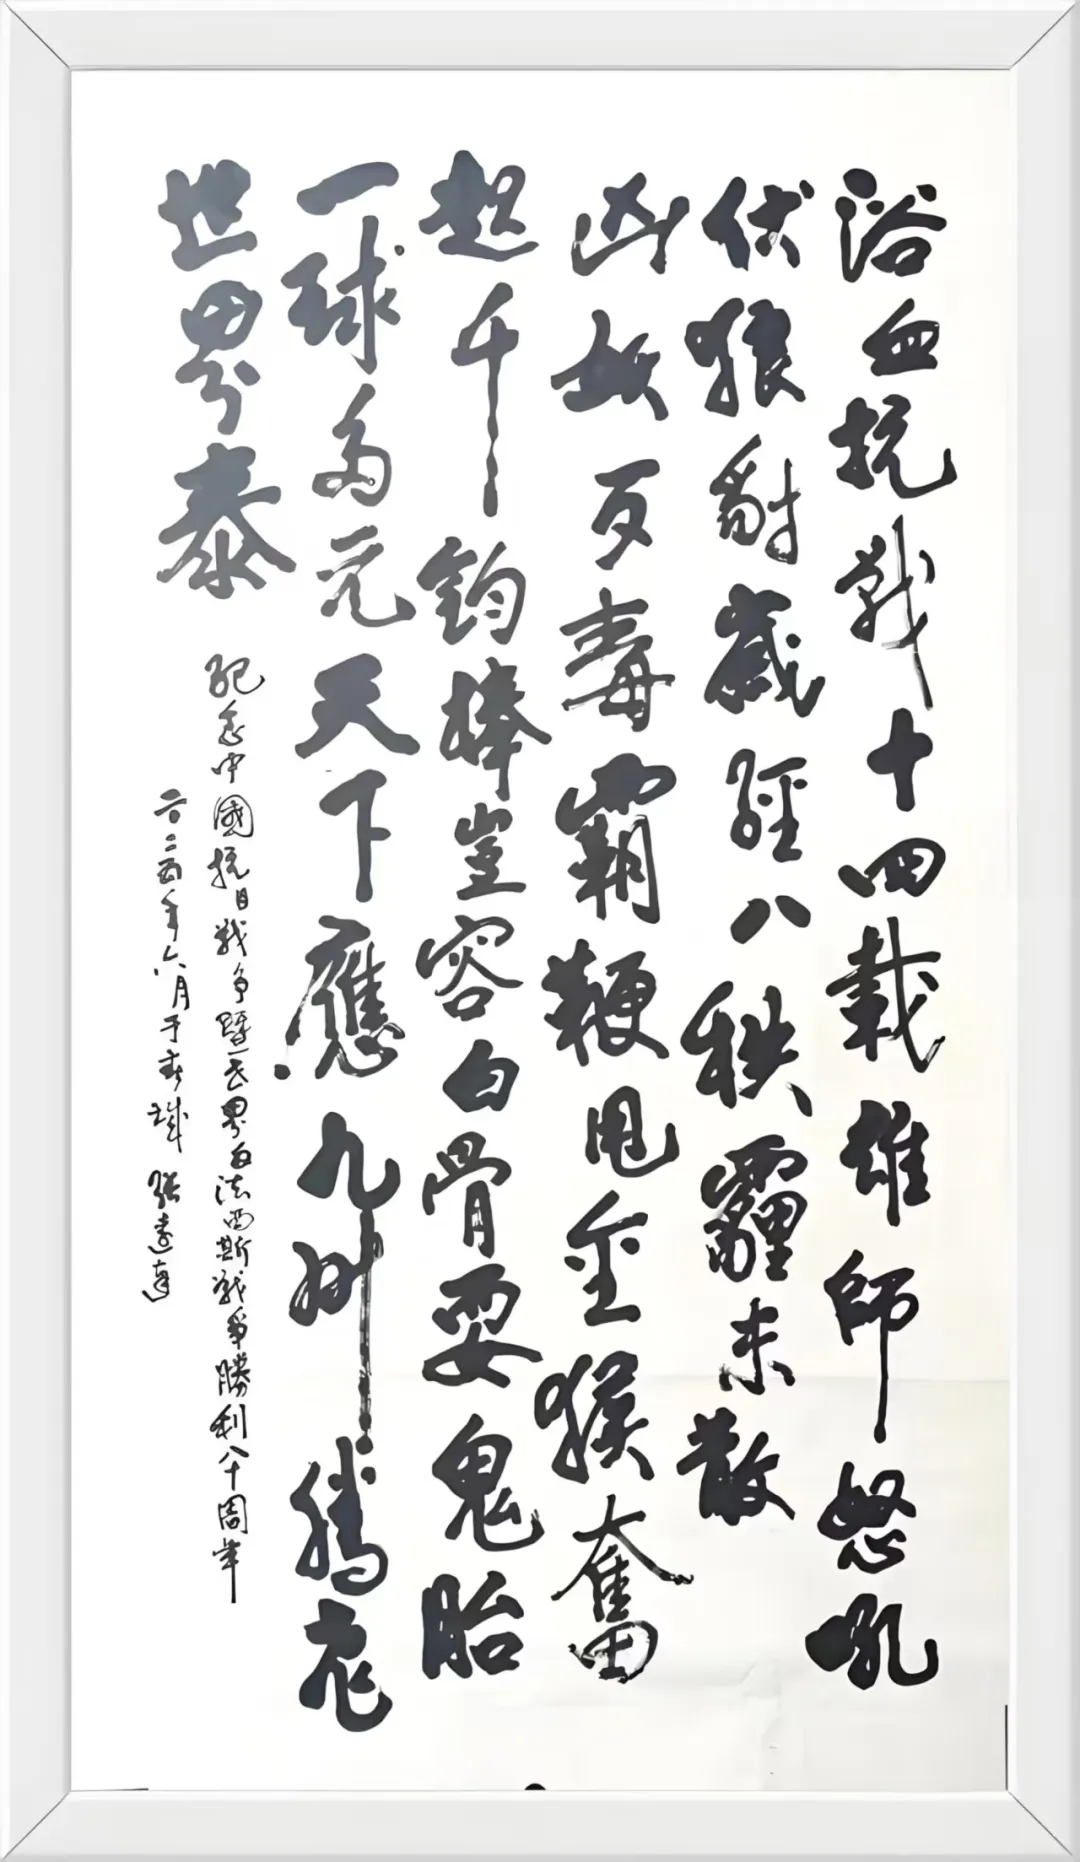 浴血抗戰十四載雄師怒吼
伏狼豺歲經八秩霾未散
凶妖歹毒霸鞭甩金猴奮
起千鈞棒豈容白骨耍鬼胎
一球多元天下應九州騰飛
世界泰
紀念中國抗日戰爭暨世界反法西斯戰爭勝利八十周年
二〇二五年六月于春城 張遠達